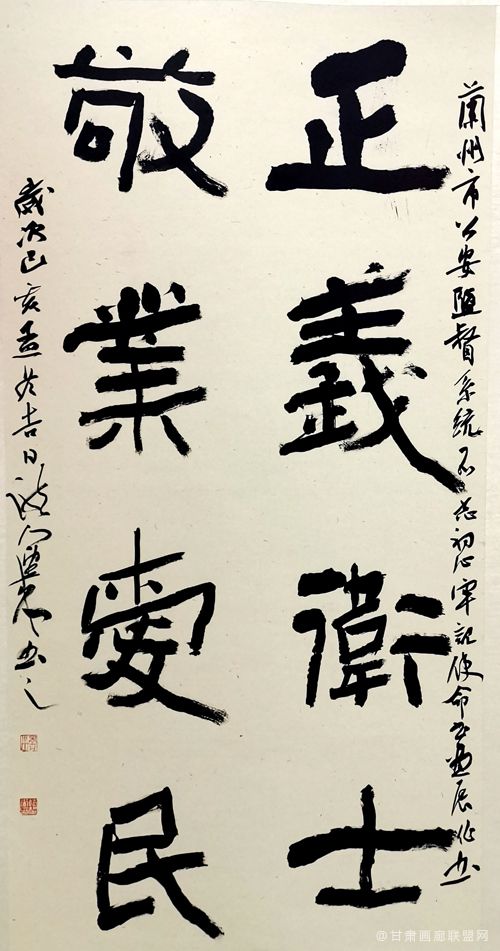 蘭州市公安監督系統不忘初心牢記使命書畫展作書
正義衛士
敬業愛民
歲次己亥孟冬吉日
書之
@甘肃画廊联盟网